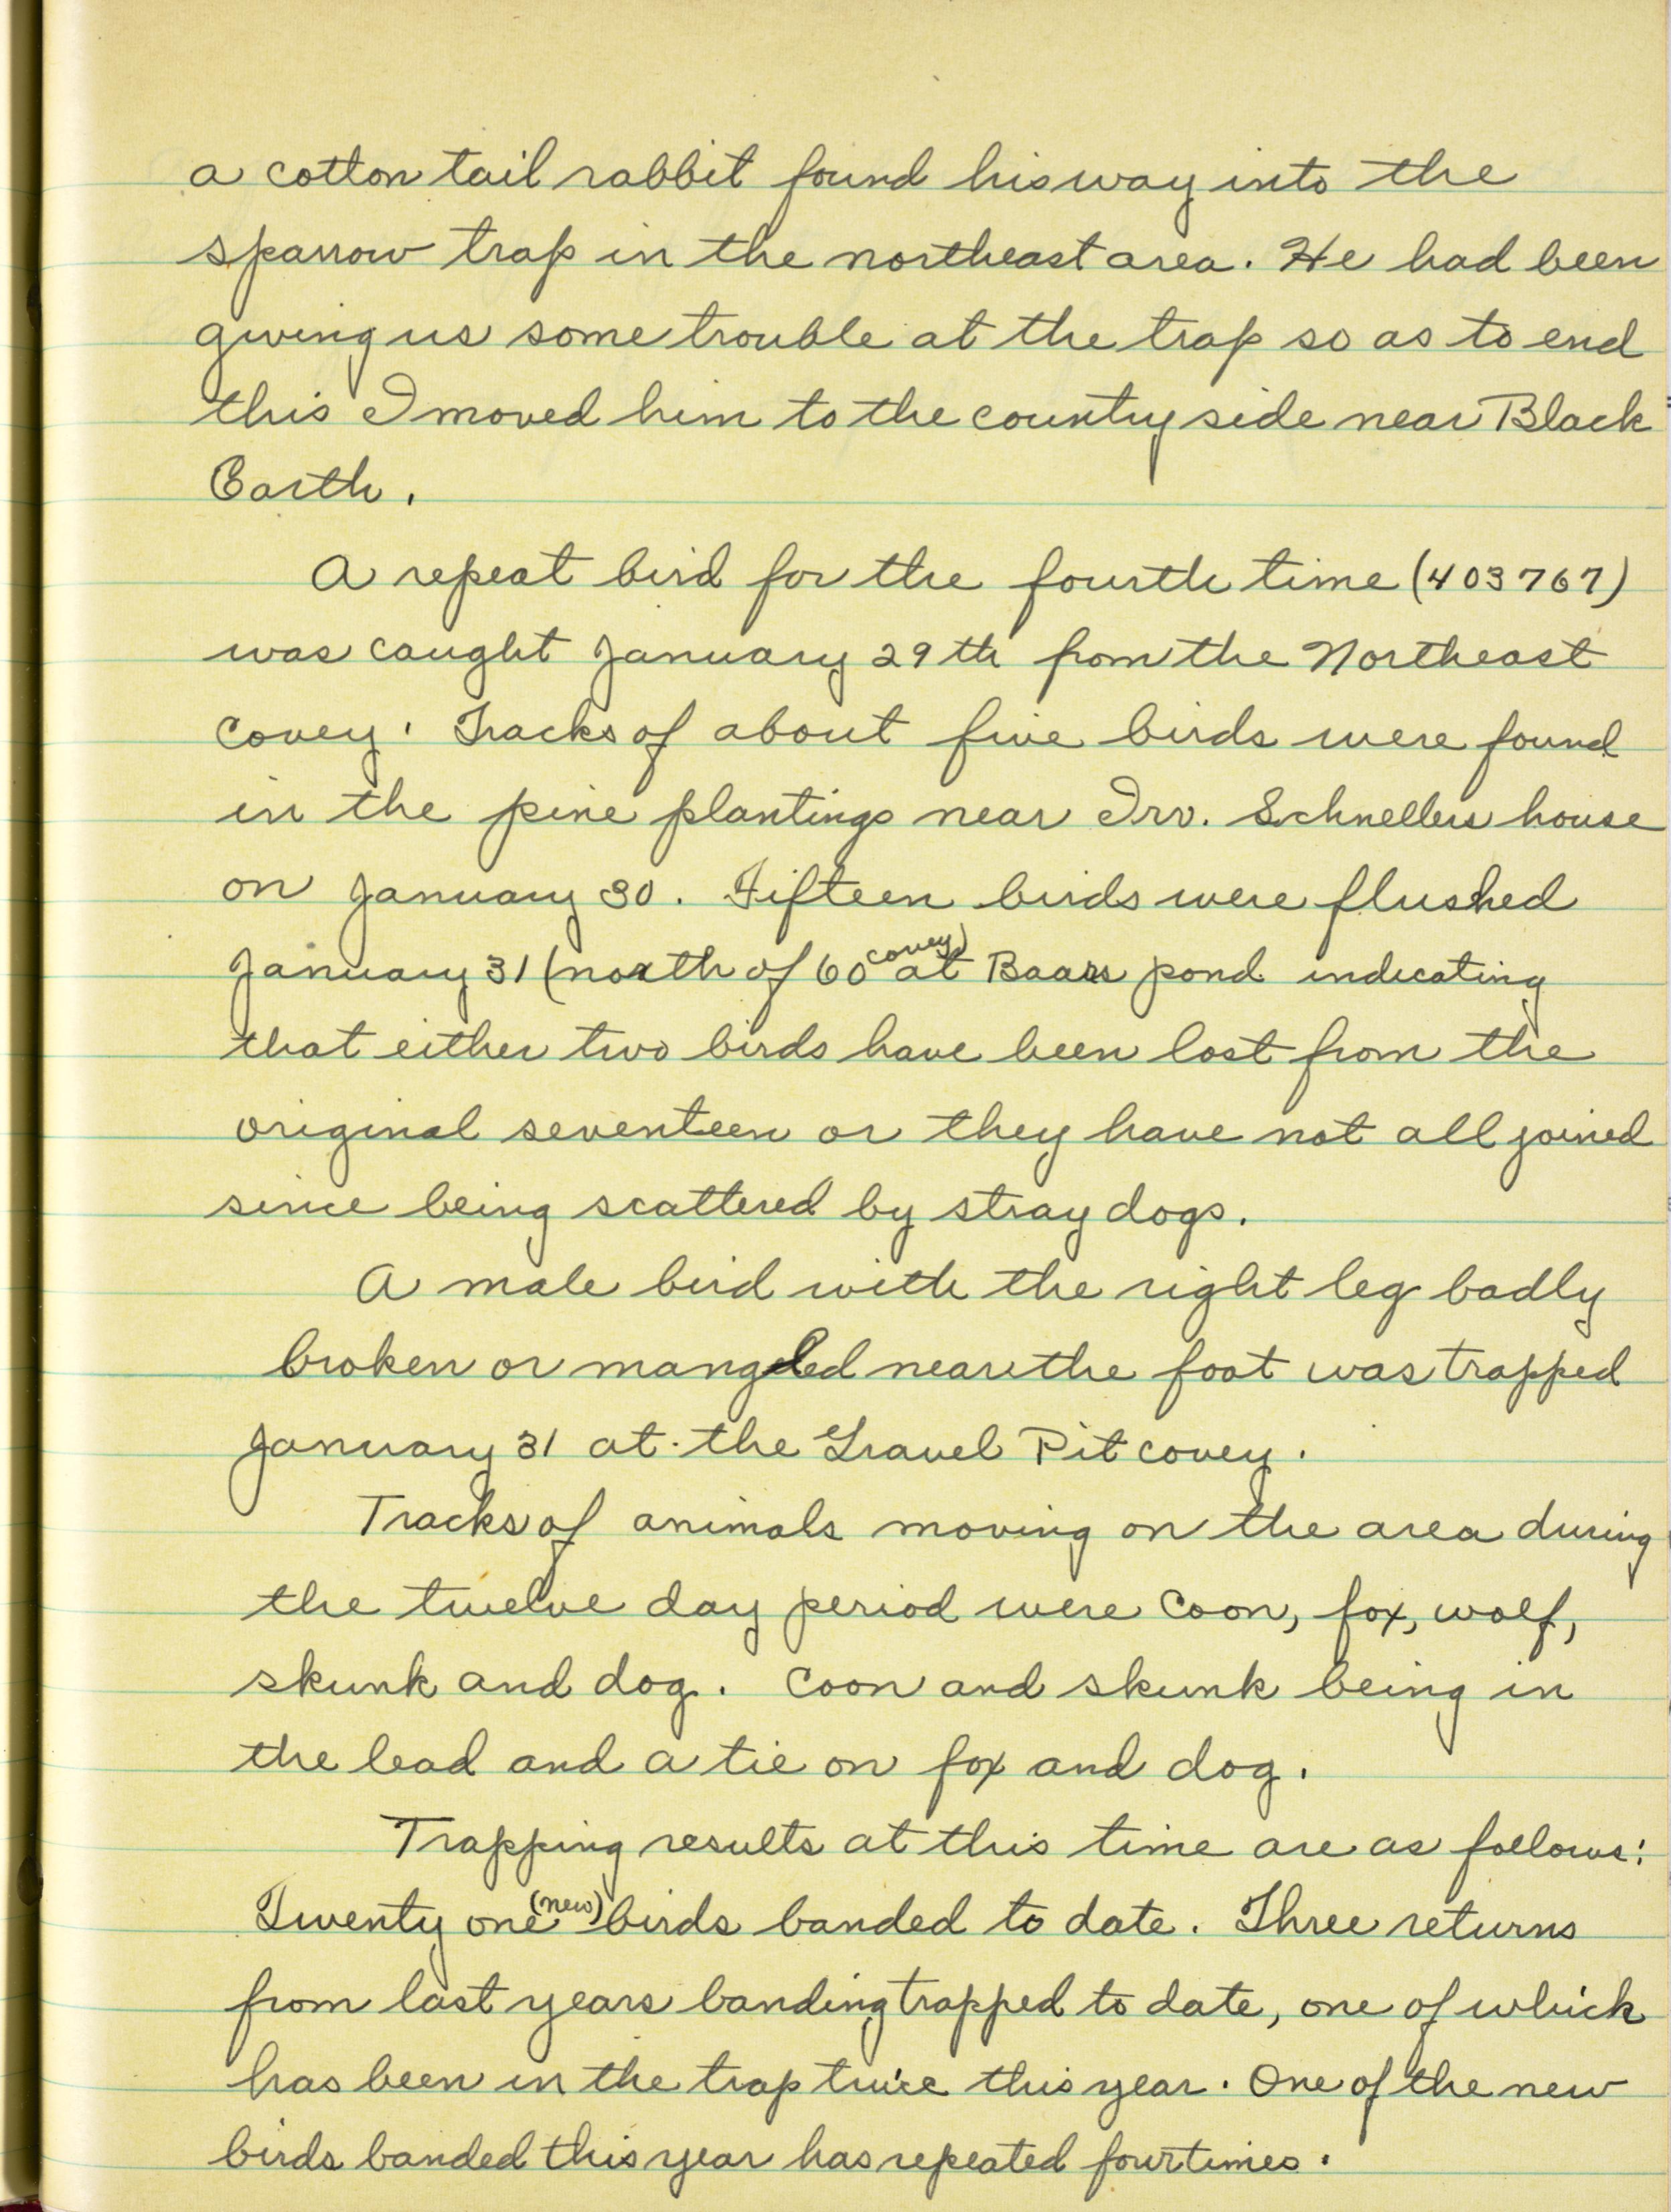 a cotton tail rabbit found his way into the
sparrow trap in the northeast area. He had been
giving us some trouble at the trap so as to end
this I moved him to the country side near Black
Earth.
A repeat bird for the fourth time (403767)
was caught January 29th from the Northeast
covey. Tracks of about five birds were found
in the pine plantings near Irv. Schnellers house
on January 30. Fifteen birds were flushed
January 31 (north of 60 covey) at Baars pond indicating
that either two birds have been lost from the
original seventeen or they have not all joined
since being scattered by stray dogs.
A male bird with the right leg badly
broken or mangled near the foot was trapped
January 31 at the Gravel Pit covey.
Tracks of animals moving on the area during
the twelve day period were Coon, fox, wolf,
skunk and dog. Coon and skunk being in
the lead and a tie on fox and dog.
Trapping results at this time are as follows:
Twenty one (new) birds banded to date. Three returns
from last years banding trapped to date, one of which
has been in the trap twice this year. One of the new
birds banded this year has repeated four times.